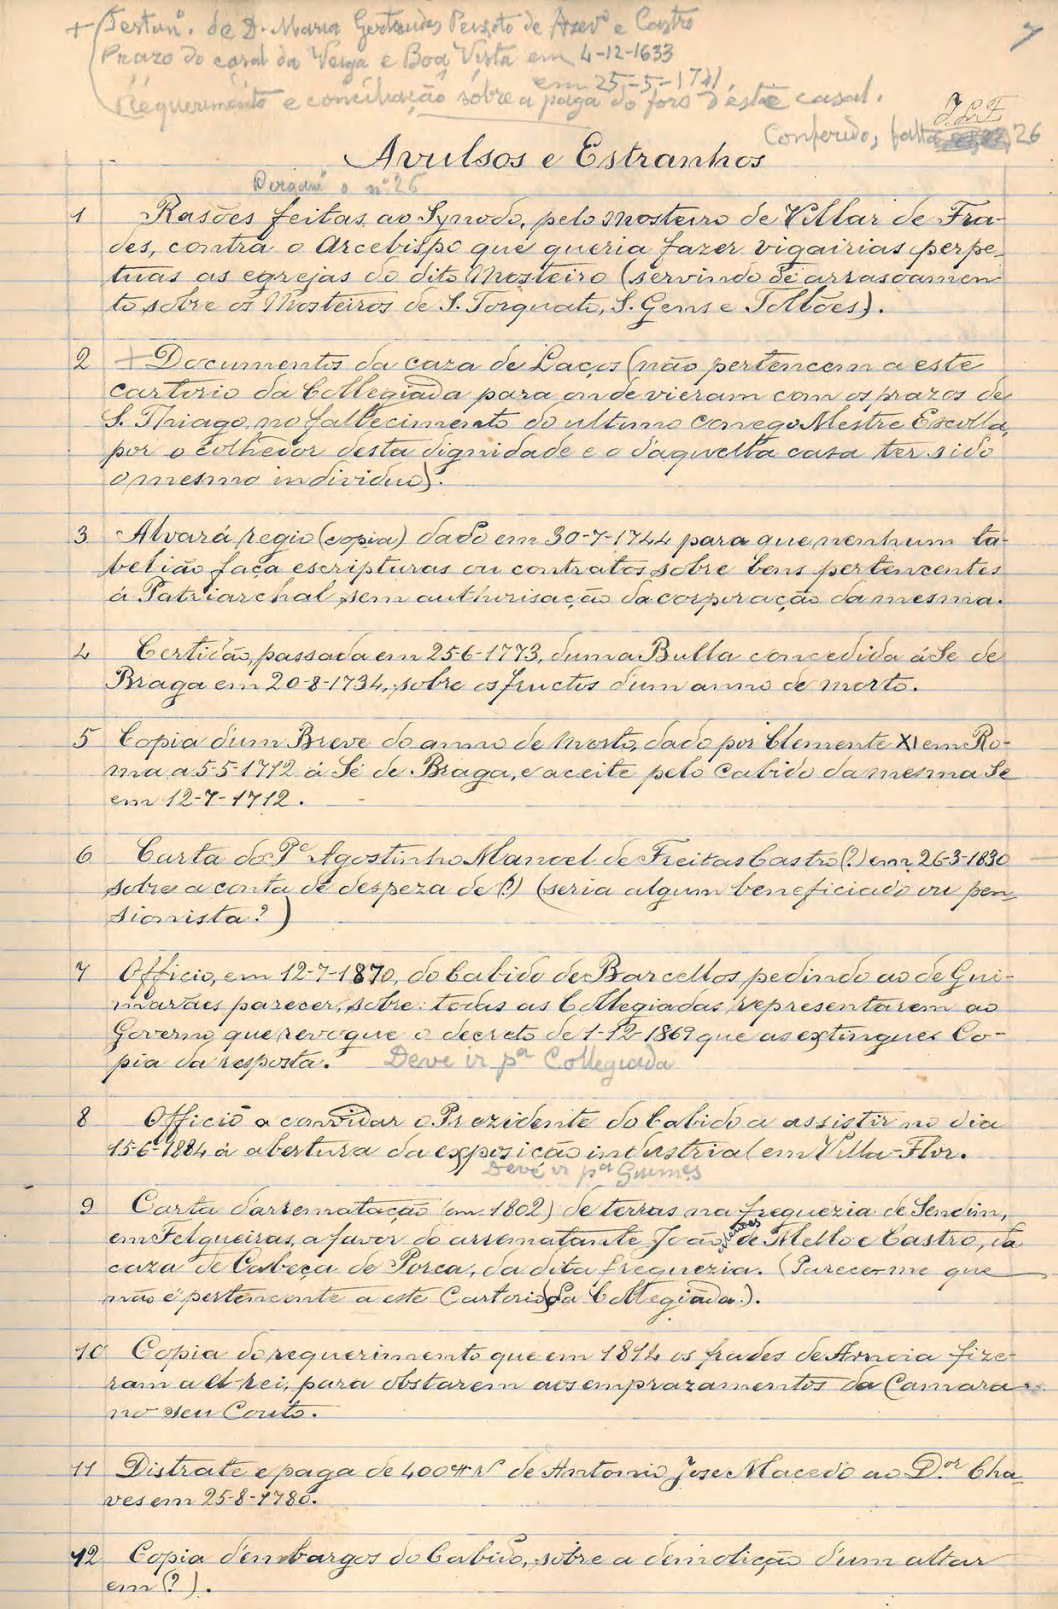 + Testam.º de D. Maria Gertrudes Peixoto de Azev.º e Castro
7
Prazo do casal da Veiga e Boa Vista em 4-12-1633
em 25-5-1741.
Requerimento e conciliação sobre a paga do foro d'este casal.
J. L. F.
Conferido, falta 26
Avulsos e Estranhos
Pergam.º o nº 26
1 Rasões feitas ao Synodo, pelo Mosteiro de Villar de Fra-
des, contra o Arcebispo que queria fazer vigairias perpe-
tuas as egrejas do dito Mosteiro (servindo de arrasoamen-
to sobre os Mosteiros de S. Torquato, S. Gens e Tollões).
2 + Documentos da caza de Laços (não pertencem a este
cartorio da Collegiada para onde vieram com os prazos de
S. Thiago, no fallecimento do ultimo conego Mestre Escolla,
por o colhedor desta dignidade e o d'aquella caza ter sido
o mesmo individuo).
3 Alvará regio (copia) dado em 30-7-1744 para que nenhum ta-
bellião faça escripturas ou contratos sobre bens pertencentes
á Patriarchal, sem authorisação da corporação da mesma.
4 Certidão, passada em 25-6-1773, duma Bulla concedida á Se de
Braga em 20-8-1734, sobre os fructos d'um anno de morto.
5 Copia d'um Breve do anno de morto, dado por Clemente XI em Ro-
ma a 5-5-1712 á Sé de Braga, e aceite pelo Cabido da mesma Se
em 12-7-1712.
6 Carta do P.e Agostinho Manoel de Freitas Castro (?) em 26-3-1830
sobre a conta de despeza de (?) (seria algum beneficiado ou pen-
sionista?)
7 Officio, em 12-7-1870, do Cabido de Barcellos pedindo ao de Gui-
marães parecer, sobre: todas as Collegiadas representarem ao
Governo que revogue o decreto de 1-12-1869 que as extingue. Co-
pia da resposta. Deve ir p.ª Collegiada
8 Officio a convidar o Prezidente do Cabido a assistir no dia
15-6-1884 á abertura da exposição industrial em Villa-Flor.
Deve ir p.ª Guim.es
9 Carta d'arrematação (em 1802) de terras na freguezia de Sendim,
em Felgueiras, a favor do arrematante João de Mello e Castro, da
caza de Cabeça de Porca, da dita freguezia. (Parece-me que
não é pertencente a este Cartorio da Collegiada.).
10 Copia do requerimento que em 1814 os frades de Arnoia fize-
ram a el-rei, para obstarem aos emprazamentos da Camara
no seu Couto.
11 Distrate e paga de 400$ de Antonio Jose Macedo ao D.or Cha-
ves em 25-8-1780.
12 Copia d'embargos do Cabido, sobre a demolição d'um altar
em (?).